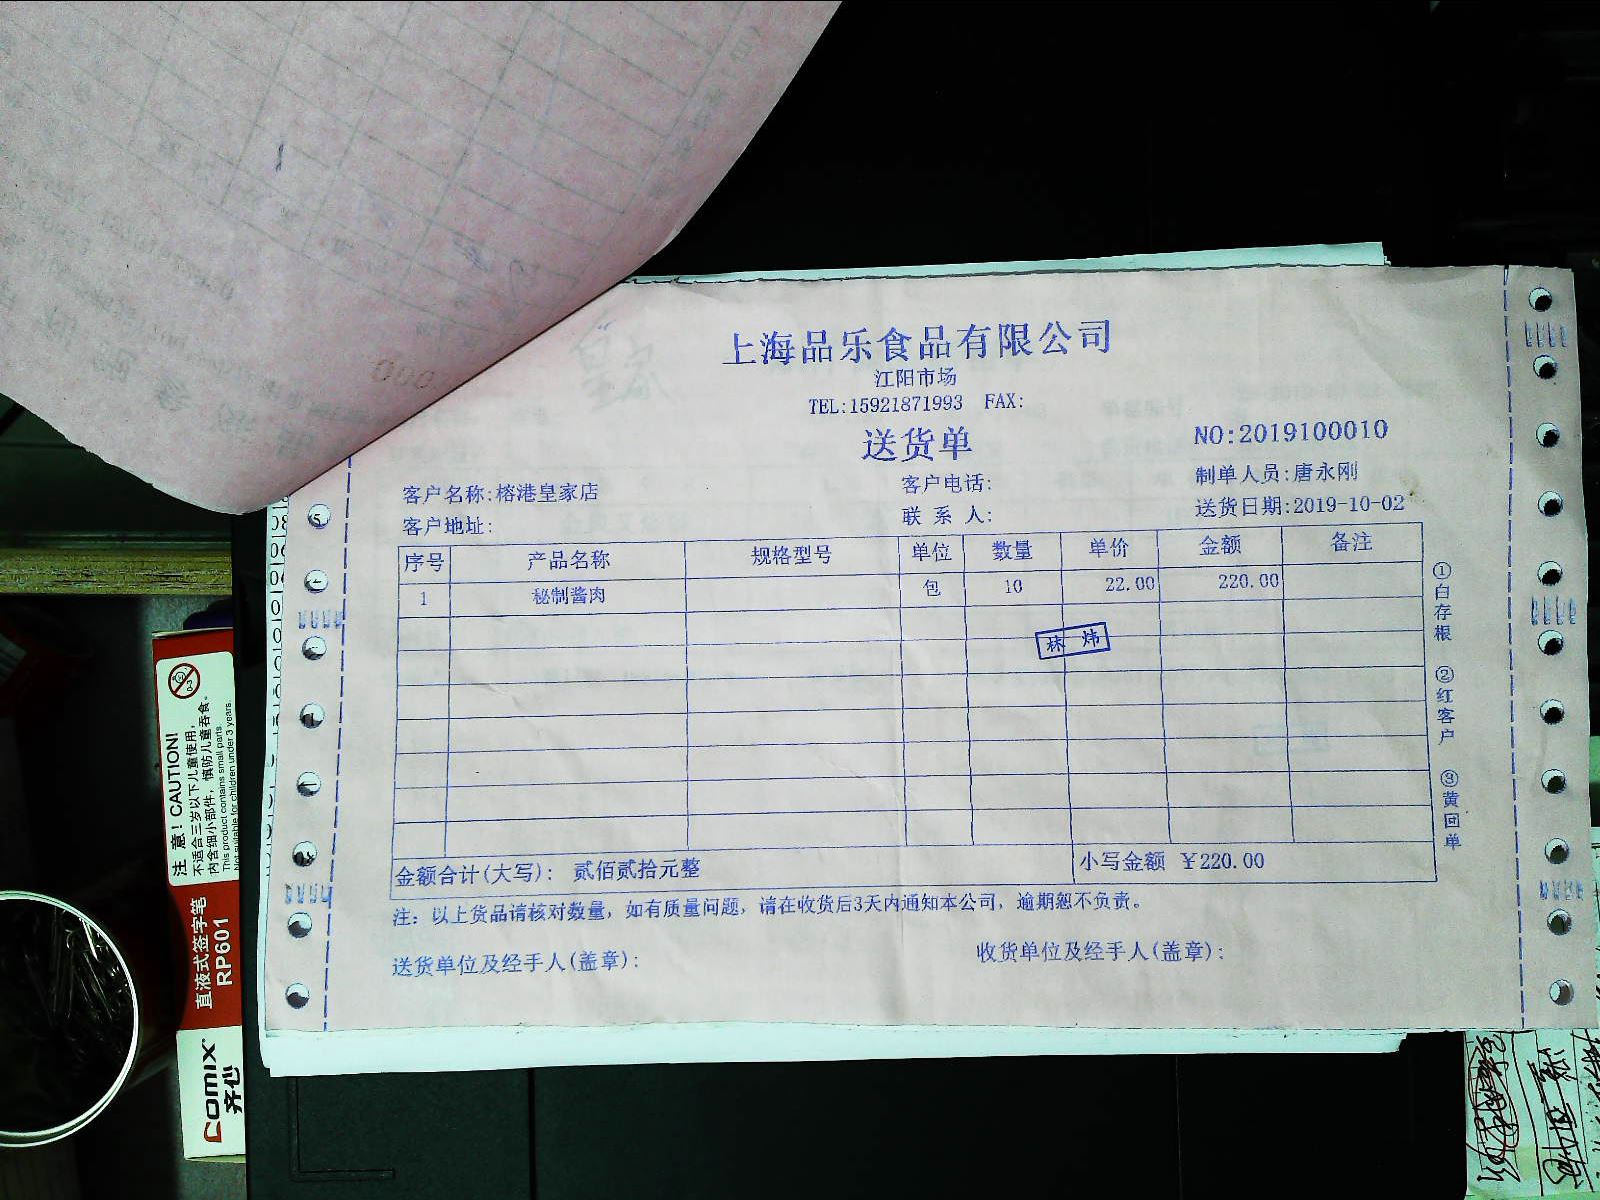 上海品乐食品有限公司
江阳市场
TEL:15921871993 FAX:
送货单
NO:2019100010
客户名称:榕港皇家店 客户电话: 制单人员:唐永刚
客户地址: 联系人: 送货日期:2019-10-02
序号 产品名称 规格型号 单位 数量 单价 金额 备注
1 秘制酱肉 包 10 22.00 220.00
林炜
金额合计(大写): 贰佰贰拾元整 小写金额 ￥220.00
注: 以上货品请核对数量, 如有质量问题, 请在收货后3天内通知本公司, 逾期恕不负责。
送货单位及经手人(盖章): 收货单位及经手人(盖章):
①白存根 ②红客户 ③黄回单
注 意! CAUTION!
不适合三岁以下儿童使用,
内含细小部件, 慎防儿童吞食。
This product contains small parts.
Not suitable for children under 3 years.
直液式签字笔
RP601
comix
齐心